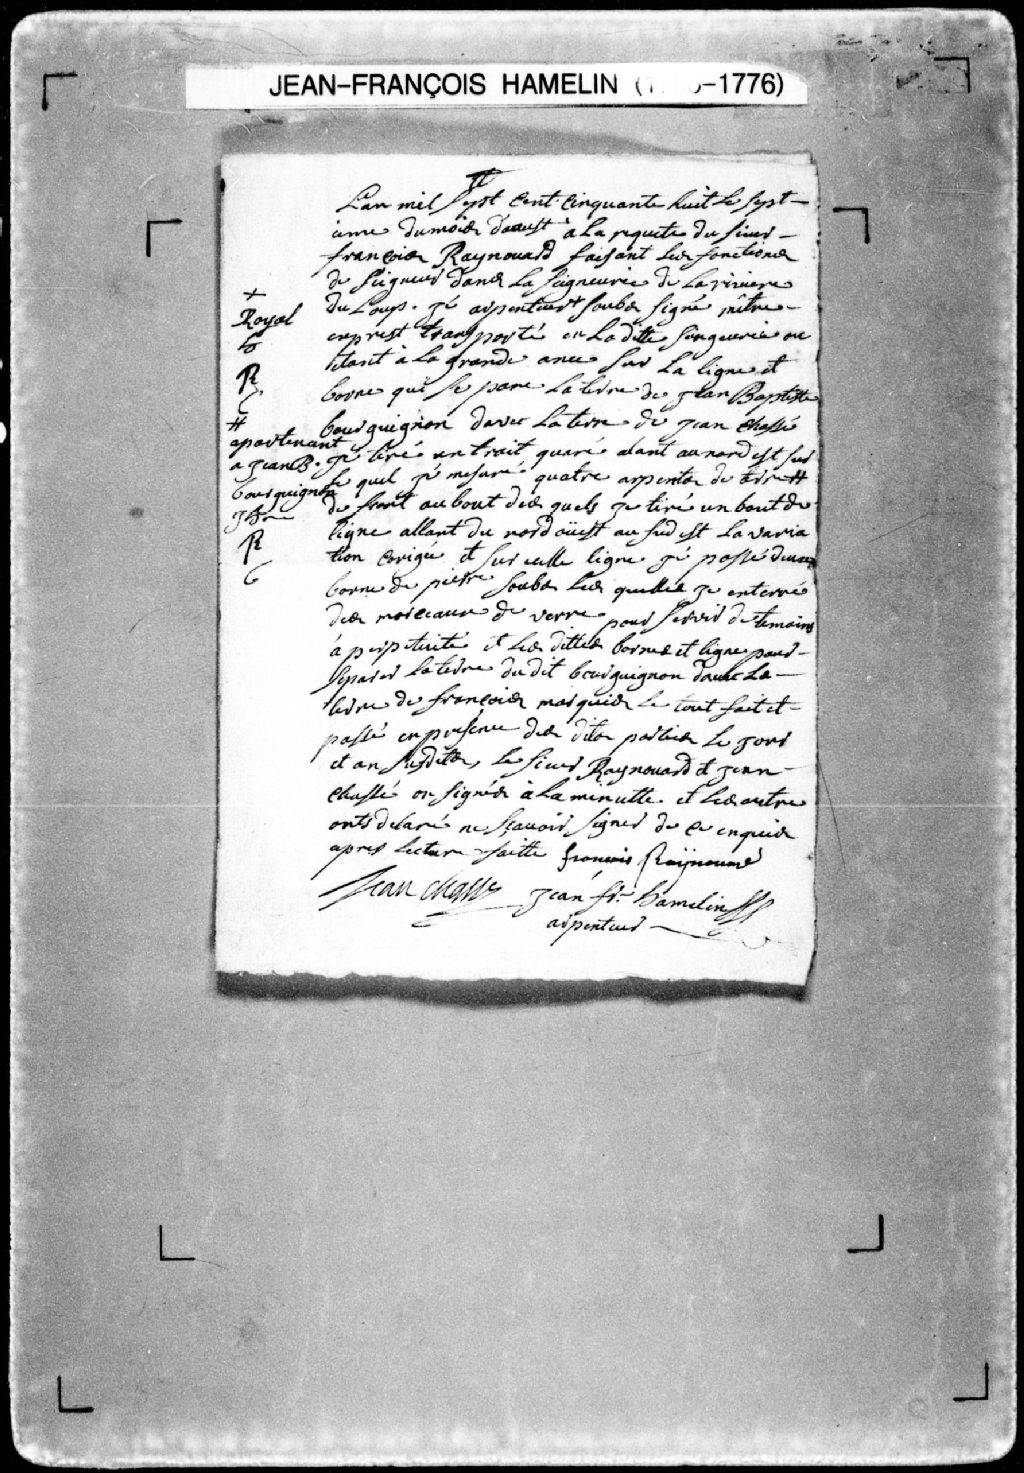 JEAN-FRANÇOIS HAMELIN (1 -1776)
Lan mil Sept Cent Cinquante huit le Sept-
ieme du mois daoust à La requete du Sieur-
francois Raynouard faisant les fonctions
de Seigneur dans La Seigneurie de La riviere
du Loup. je arpenteur + soubs signé m'etre-
exprest transporté en La ditte Seigneurie me
etant à La grande ance sur La ligne et
borne qui se pare La terre de jean Baptiste
bourguignon davec La terre de jean chassé
jé tiré un trait quaré alant au nord est sur
le quel jé mesuré quatre arpents de terre #
de front au bout des quels je tiré un bout de
ligne allant du nord oüest au sud est La varia
tion corigée et sur celle ligne jé possé deux
borne de pierre soubs les quelles je enterré
des morceaux de verre pour servir de temoins
à perpetuité et les dittes bornes et ligne pour-
separer La terre du dit bourguignon davec La-
terre de francois marquis le tout fait et-
passé en presence des dits parties le jour
et an susdits, le sieur Raynouard et jean-
chassé on signés à La minutte et les autre
onts declaré ne sçavoir signer de ce enquis
apres lecture faitte françois Raÿnouard
Jean chasse jean fr. hamelin
arpenteur
+
Royal
h
R
C
#
apartenant
a jean B.
bourguignon
R
C